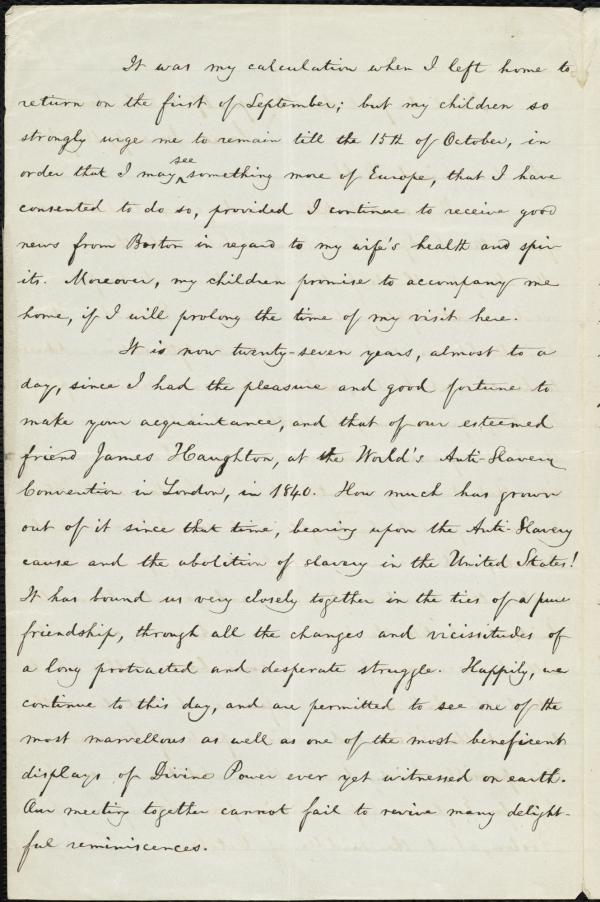 It was my calculation when I left home to
return on the first of September; but my children so
strongly urge me to remain till the 15th of October, in
see
order that I may something more of Europe, that I have
consented to do so, provided I continue to receive good
news from Boston in regard to my wife's health and spir-
its. Moreover, my children promise to accompany me
home, if I will prolong the time of my visit here.
It is now twenty-seven years, almost to a
day, since I had the pleasure and good fortune to
make your acquaintance, and that of our esteemed
friend James Haughton, at the World's Anti-Slavery
Convention in London, in 1840. How much has grown
out of it since that time, bearing upon the Anti-Slavery
cause and the abolition of slavery in the United States!
It has bound us very closely together in the ties of a pure
friendship, through all the changes and vicissitudes of
a long protracted and desperate struggle. Happily, we
continue to this day, and are permitted to see one of the
most marvellous as well as one of the most beneficent
displays of Divine Power ever yet witnessed on earth.
Our meeting together cannot fail to revive many delight-
ful reminiscences.